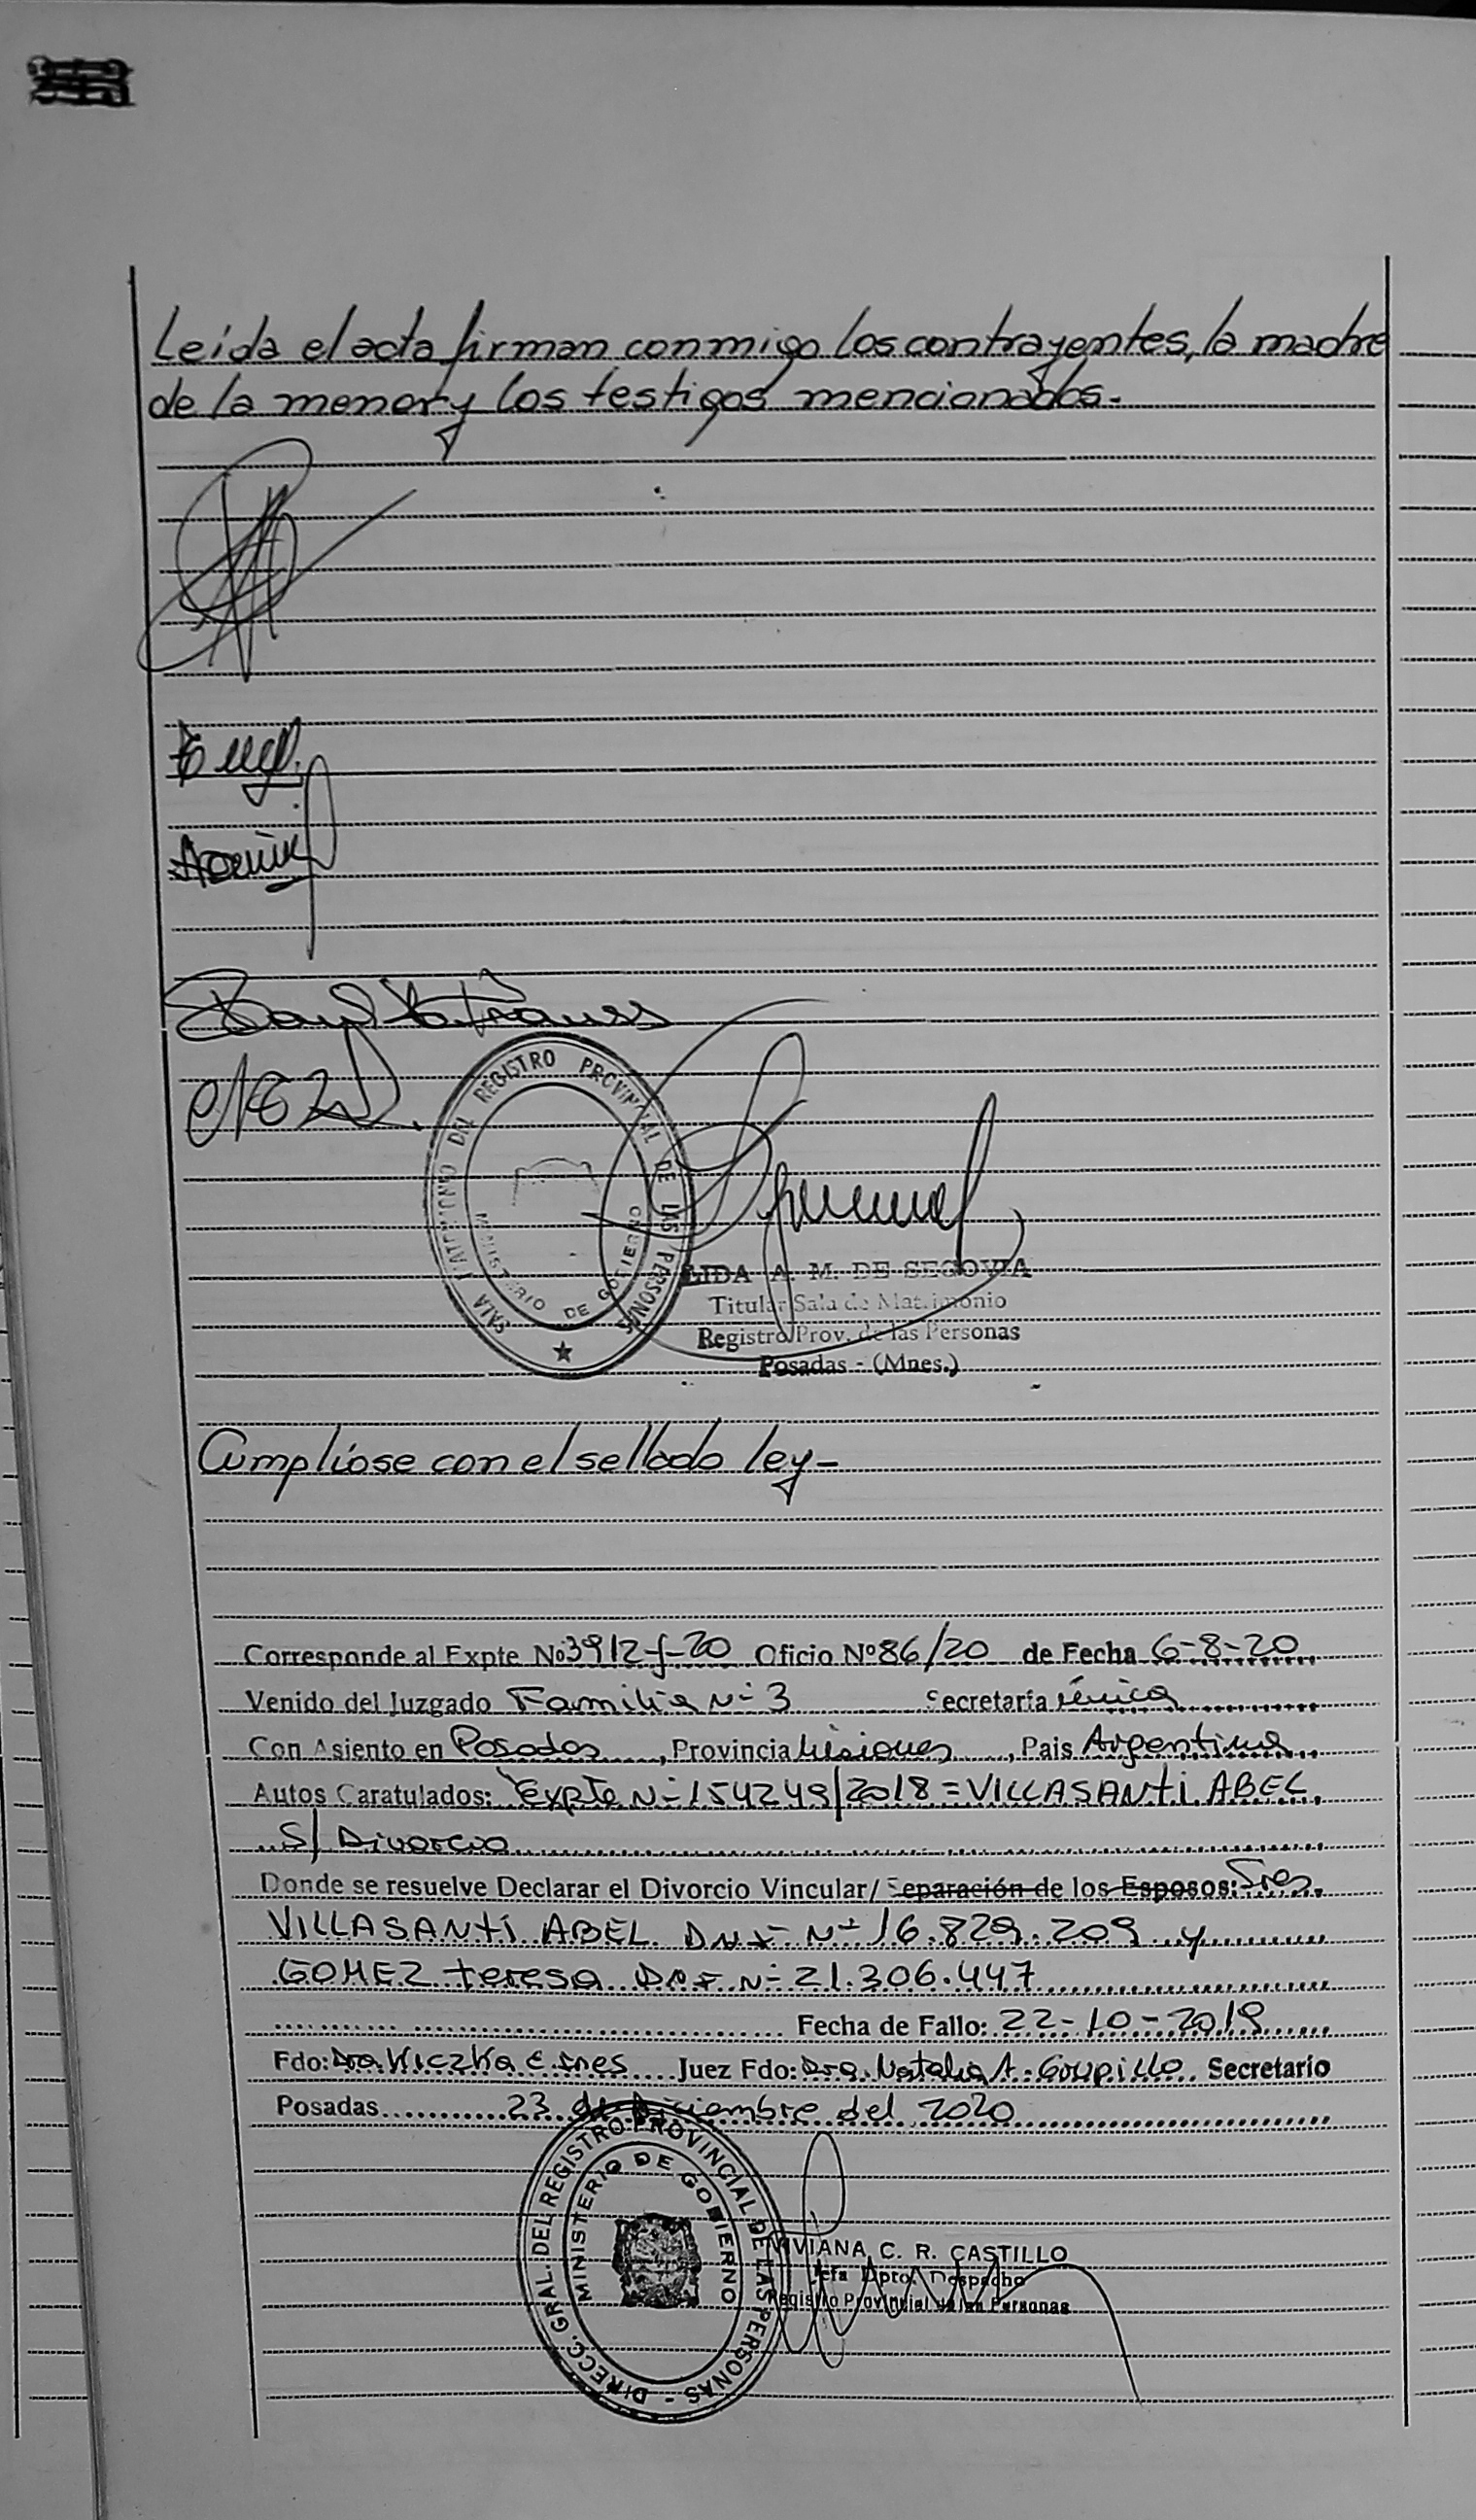 Leída el acta firman conmigo los contrayentes, la madre
de la menor y los testigos mencionados.-
SALA MATRIMONIO DEL REGISTRO PROVINCIAL DE LAS PERSONAS
MINISTERIO DE GOBIERNO
LIDA A. M. DE SEGOVIA
Titular Sala de Matrimonio
Registro Prov. de las Personas
Posadas - (Mnes.)
Cumplióse con el sellado ley-
Corresponde al Expte Nº 3912-f-20 Oficio Nº 86/20 de Fecha 6-8-20
Venido del Juzgado Familia Nº 3 Secretaría única
Con Asiento en Posadas, Provincia Misiones, Pais Argentina
Autos Caratulados: "Expte Nº 154249/2018 = VILLASANTI ABEL
S/ Divorcio
Donde se resuelve Declarar el Divorcio Vincular/ Separación de los Esposos: Sres.
VILLASANTI ABEL DNI Nº 16.829.209 y
GOMEZ teresa DNI Nº 21.306.447
Fecha de Fallo: 22-10-2019
Fdo: Dra. E. Ines Juez Fdo: Dra. Natalia A. Secretario
Posadas 23 de Diciembre del 2020
DIRECC. GRAL. DEL REGISTRO PROVINCIAL DE LAS PERSONAS
MINISTERIO DE GOBIERNO
VIVIANA C. R. CASTILLO
Jefa Dpto. Despacho
Registro Provincial de las Personas